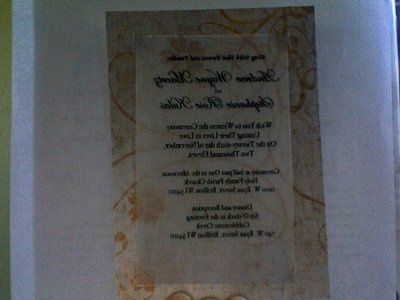 Along With Their Parents and Families
Andrew Wayne
and
Stephanie Rose
Wish You to Witness the Ceremony
Uniting Their Lives in Love
On the Twenty-sixth day of November,
Two Thousand Eleven
Ceremony at half past One in the Afternoon
Holy Family Parish Church
1100 W. Ryan Street, Brillion WI 54110
Dinner and Reception
Six O'clock in the Evening
Cobblestone Creek
740 W. Ryan Street, Brillion WI 54110